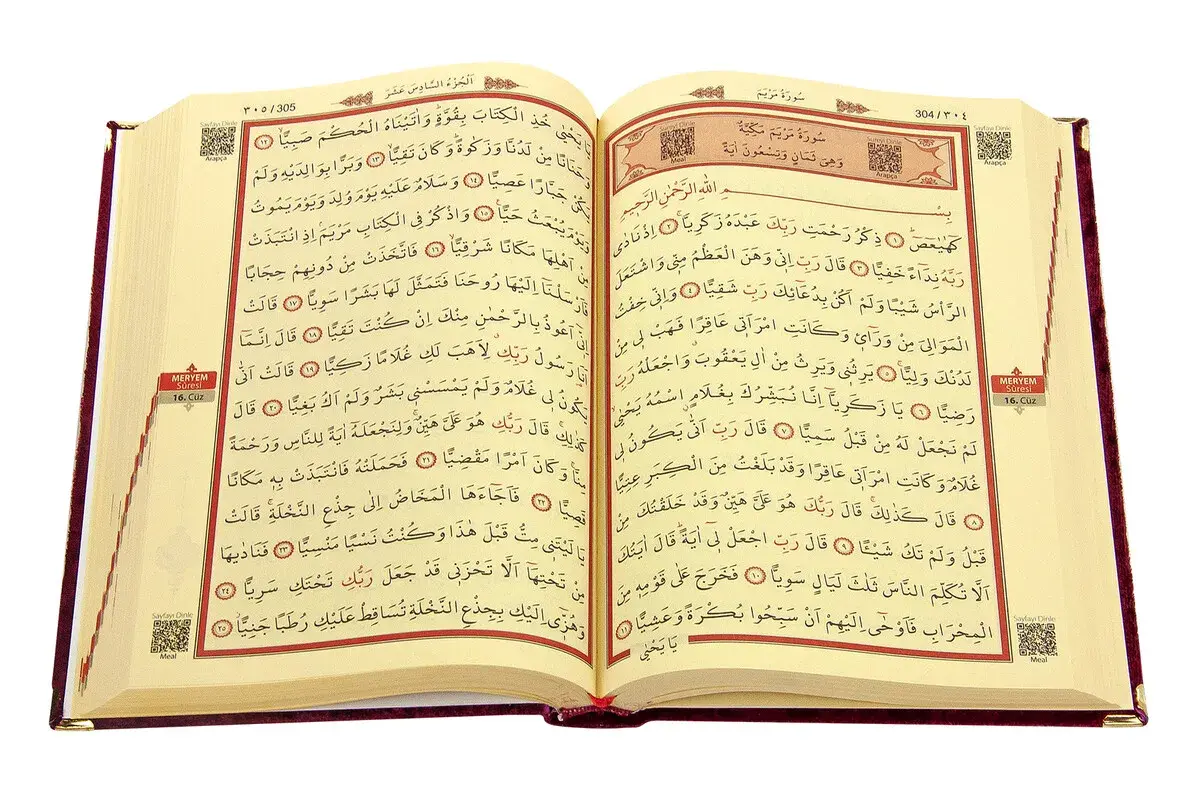 سُورَةُ مَرْيَمَ
304/٣٠٤
Sayfayı Dinle
Meal
سُورَةُ مَرْيَمَ مَكِّيَّةٌ
وَهِىَ ثَمَانٍ وَتِسْعُونَ اٰيَةً
Sureyi Dinle
Arapça
Sayfayı Dinle
Arapça
بِسْــــــــمِ اللّٰهِ الرَّحْمٰنِ الرَّحٖيمِ
كٓهٰيٰعٓصٓ ۝١ ذِكْرُ رَحْمَتِ رَبِّكَ عَبْدَهُ زَكَرِيَّاۚ ۝٢ اِذْ نَادٰى
رَبَّهُ نِدَٓاءً خَفِيًّا ۝٣ قَالَ رَبِّ اِنّٖى وَهَنَ الْعَظْمُ مِنّٖى وَاشْتَعَلَ
الرَّأْسُ شَيْبًا وَلَمْ اَكُنْ بِدُعَٓائِكَ رَبِّ شَقِيًّا ۝٤ وَاِنّٖى خِفْتُ
الْمَوَالِىَ مِنْ وَرَٓاءٖى وَكَانَتِ امْرَاَتٖى عَاقِرًا فَهَبْ لٖى مِنْ
لَدُنْكَ وَلِيًّاۙ ۝٥ يَرِثُنٖى وَيَرِثُ مِنْ اٰلِ يَعْقُوبَۗ وَاجْعَلْهُ رَبِّ
رَضِيًّا ۝٦ يَا زَكَرِيَّٓا اِنَّا نُبَشِّرُكَ بِغُلَامٍۨ اسْمُهُ يَحْيٰىۙ
لَمْ نَجْعَلْ لَهُ مِنْ قَبْلُ سَمِيًّا ۝٧ قَالَ رَبِّ اَنّٰى يَكُونُ لٖى
غُلَامٌ وَكَانَتِ امْرَاَتٖى عَاقِرًا وَقَدْ بَلَغْتُ مِنَ الْكِبَرِ عِتِيًّا
۝٨ قَالَ كَذٰلِكَۚ قَالَ رَبُّكَ هُوَ عَلَىَّ هَيِّنٌ وَقَدْ خَلَقْتُكَ مِنْ
قَبْلُ وَلَمْ تَكُ شَيْـًٔا ۝٩ قَالَ رَبِّ اجْعَلْ لٖٓى اٰيَةًۜ قَالَ اٰيَتُكَ
اَلَّا تُكَلِّمَ النَّاسَ ثَلٰثَ لَيَالٍ سَوِيًّا ۝١٠ فَخَرَجَ عَلٰى قَوْمِهٖ مِنَ
الْمِحْرَابِ فَاَوْحٰٓى اِلَيْهِمْ اَنْ سَبِّحُوا بُكْرَةً وَعَشِيًّا ۝١١
يَا يَحْيٰى
MERYEM
Sûresi
16. Cüz
Sayfayı Dinle
Meal
اَلْجُزْءُ السَّادِسَ عَشَرَ
٣٠٥/305
Sayfayı Dinle
Arapça
يَا يَحْيٰى خُذِ الْكِتَابَ بِقُوَّةٍۜ وَاٰتَيْنَاهُ الْحُكْمَ صَبِيًّاۙ ۝١٢
وَحَنَانًا مِنْ لَدُنَّا وَزَكٰوةًۜ وَكَانَ تَقِيًّاۙ ۝١٣ وَبَرًّا بِوَالِدَيْهِ وَلَمْ
يَكُنْ جَبَّارًا عَصِيًّا ۝١٤ وَسَلَامٌ عَلَيْهِ يَوْمَ وُلِدَ وَيَوْمَ يَمُوتُ
وَيَوْمَ يُبْعَثُ حَيًّا۟ ۝١٥ وَاذْكُرْ فِى الْكِتَابِ مَرْيَمَۢ اِذِ انْتَبَذَتْ
مِنْ اَهْلِهَا مَكَانًا شَرْقِيًّاۙ ۝١٦ فَاتَّخَذَتْ مِنْ دُونِهِمْ حِجَابًا
فَاَرْسَلْنَٓا اِلَيْهَا رُوحَنَا فَتَمَثَّلَ لَهَا بَشَرًا سَوِيًّا ۝١٧ قَالَتْ
اِنّٖٓى اَعُوذُ بِالرَّحْمٰنِ مِنْكَ اِنْ كُنْتَ تَقِيًّا ۝١٨ قَالَ اِنَّمَٓا
اَنَا رَسُولُ رَبِّكِۗ لِاَهَبَ لَكِ غُلَامًا زَكِيًّا ۝١٩ قَالَتْ اَنّٰى
يَكُونُ لٖى غُلَامٌ وَلَمْ يَمْسَسْنٖى بَشَرٌ وَلَمْ اَكُ بَغِيًّا ۝٢٠ قَالَ
كَذٰلِكِۚ قَالَ رَبُّكِ هُوَ عَلَىَّ هَيِّنٌۚ وَلِنَجْعَلَهُٓ اٰيَةً لِلنَّاسِ وَرَحْمَةً
مِنَّاۚ وَكَانَ اَمْرًا مَقْضِيًّا ۝٢١ فَحَمَلَتْهُ فَانْتَبَذَتْ بِهٖ مَكَانًا
قَصِيًّا ۝٢٢ فَاَجَٓاءَهَا الْمَخَاضُ اِلٰى جِذْعِ النَّخْلَةِۚ قَالَتْ
يَا لَيْتَنٖى مِتُّ قَبْلَ هٰذَا وَكُنْتُ نَسْيًا مَنْسِيًّا ۝٢٣ فَنَادٰيهَا
مِنْ تَحْتِهَٓا اَلَّا تَحْزَنٖى قَدْ جَعَلَ رَبُّكِ تَحْتَكِ سَرِيًّا ۝٢٤
وَهُزّٖٓى اِلَيْكِ بِجِذْعِ النَّخْلَةِ تُسَاقِطْ عَلَيْكِ رُطَبًا جَنِيًّاۘ ۝٢٥
MERYEM
Sûresi
16. Cüz
Sayfayı Dinle
Meal